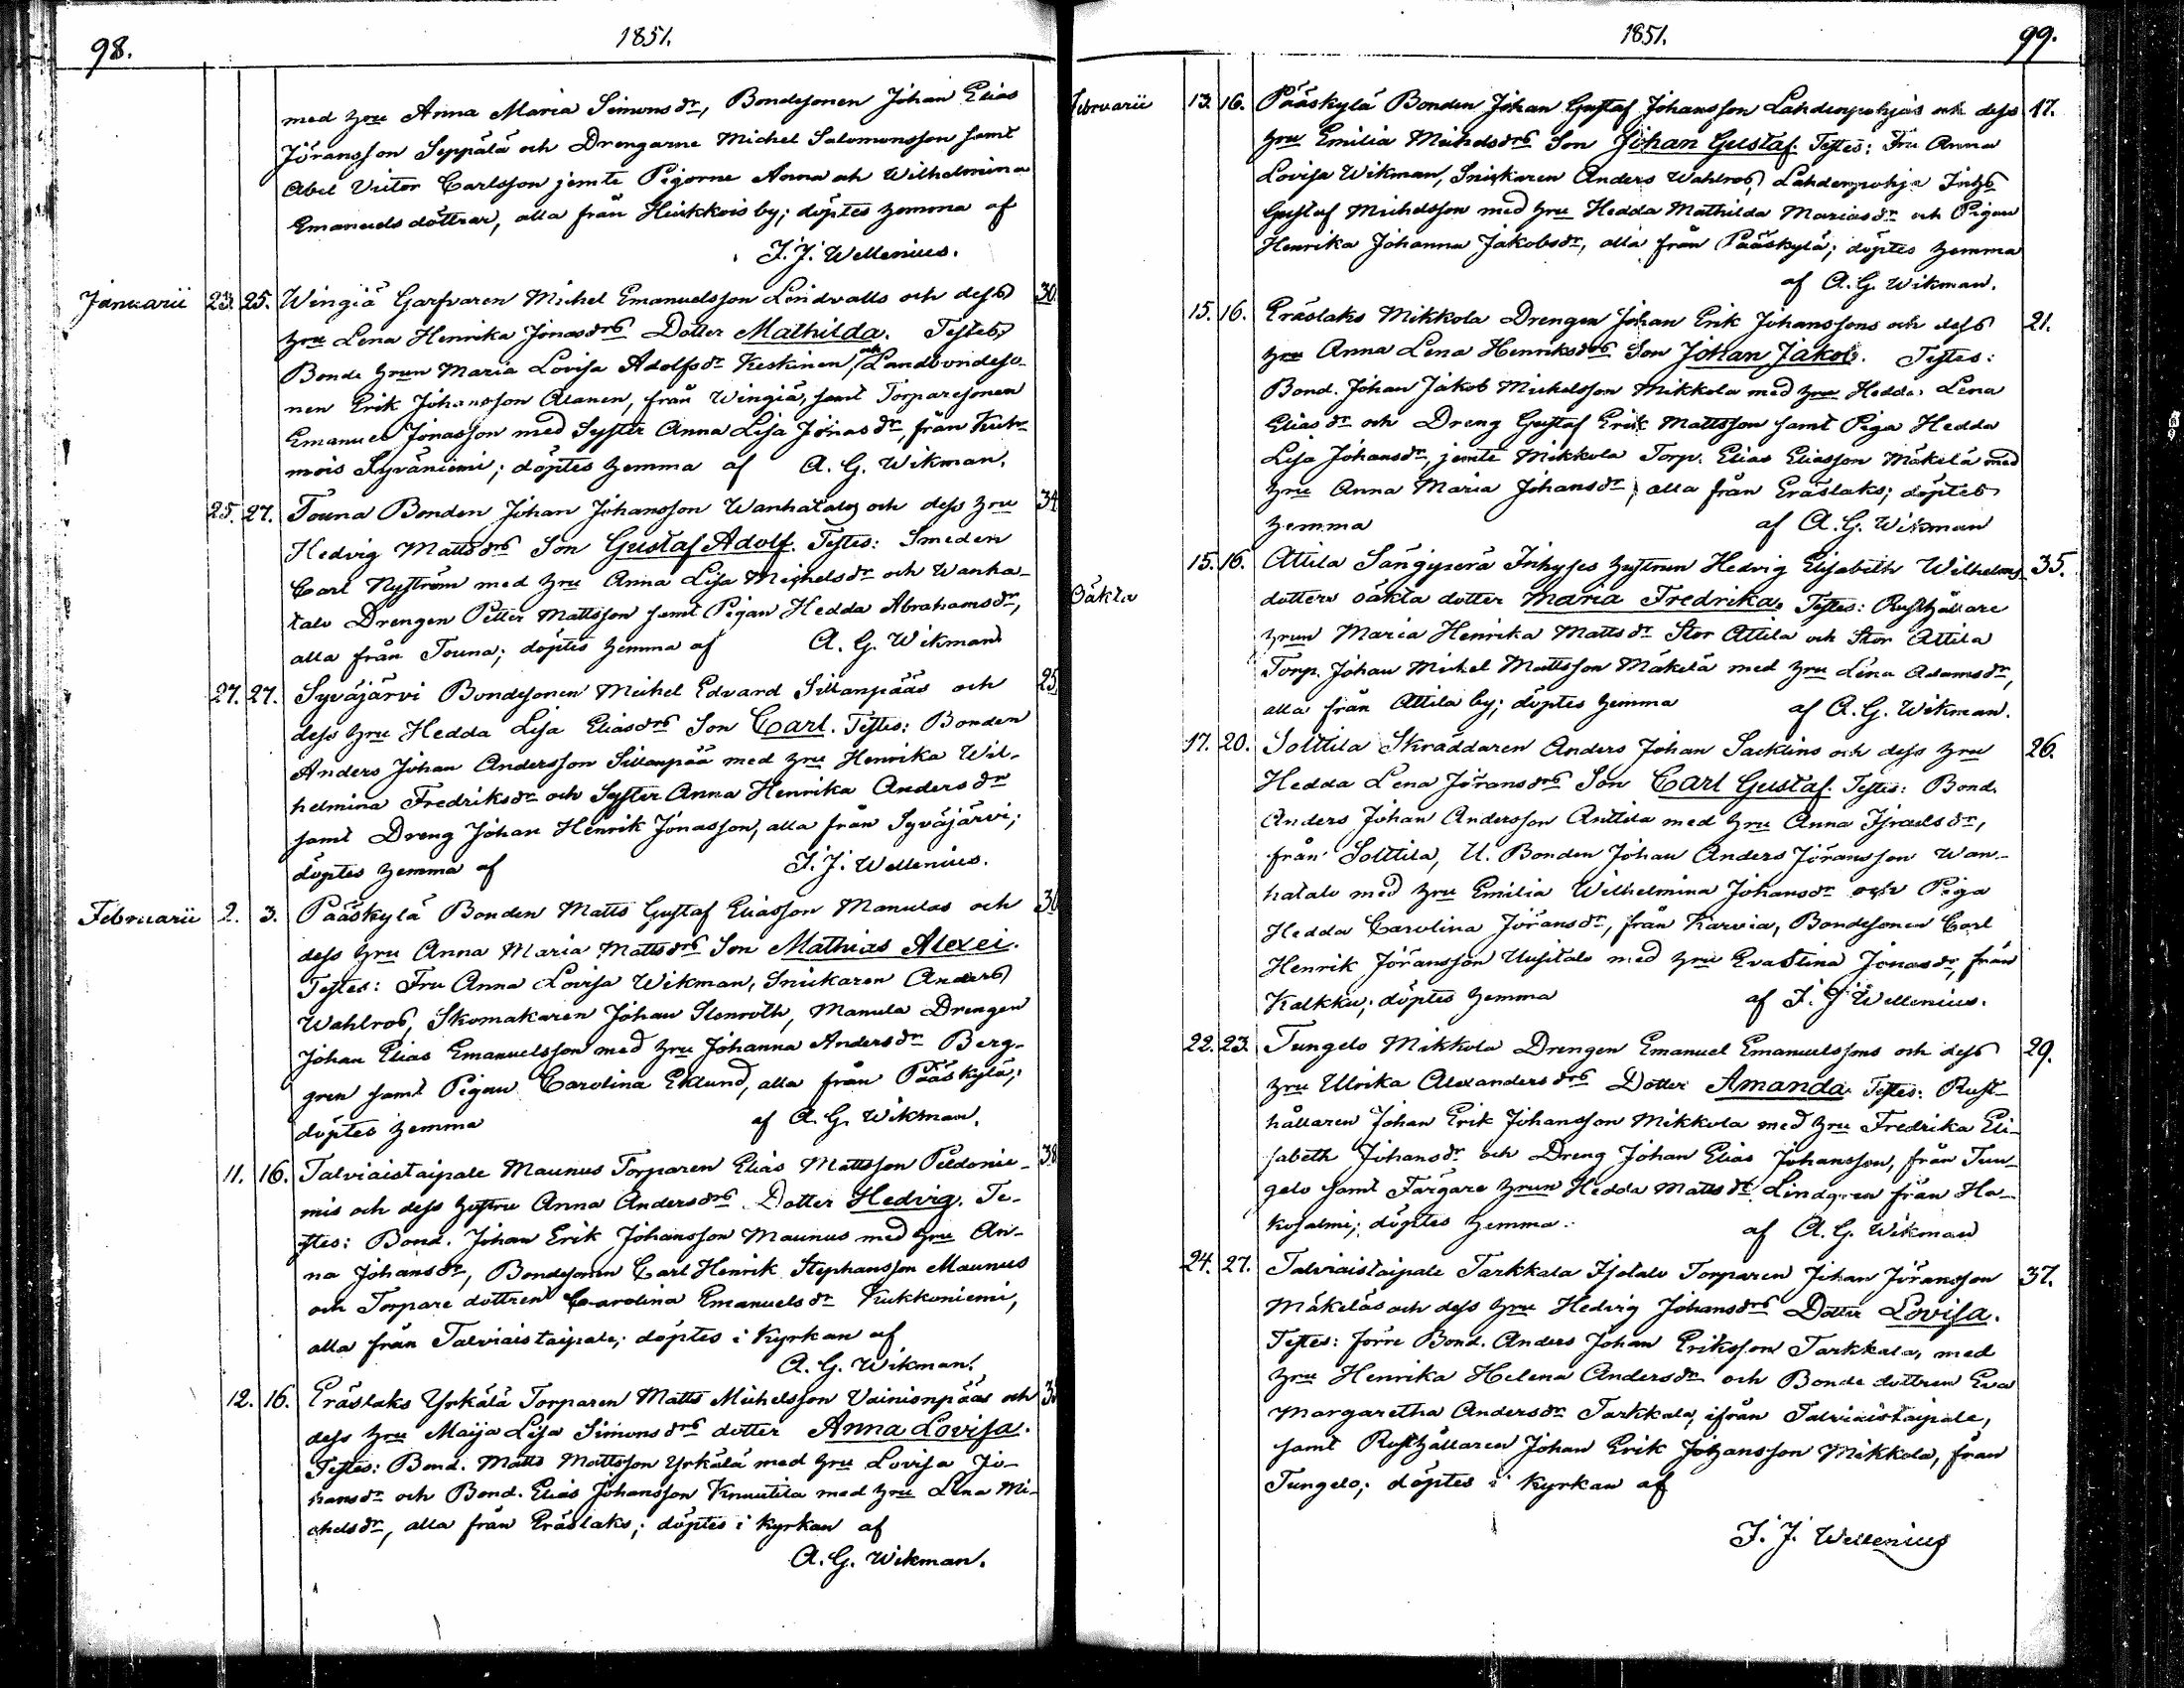 98.
1851.
med hru Anna Maria Simonsdr, Bondesonen Johan Elias
Jöransson Seppälä och Drengarne Michel Salomonsson samt
Abel Victor Carlsson jemte Pigorne Anna och Wilhelmina
Emanuels döttrar, alla från Heikkois by; döptes hemma af
F. J. Wellenius.
Januarii 23. 25. Wingiä Garfvaren Michel Emanuelsson Lindvalls och dess 30.
hru Lena Henrika Jonasdrs Dotter Mathilda. Testes,
Bonde hrun Maria Lovisa Adolfsdr Keskinen, och Landbondeso-
nen Erik Johansson Alanen, från Wingiä, samt Torparesonen
Emanuel Jonasson med Syster Anna Lisa Jonasdr, från Kuh-
mois Syväniemi; döptes hemma af A. G. Wikman.
25. 27. Touna Bonden Johan Johansson Wanhatalos och dess hru 34
Hedvig Mattsdrs Son Gustaf Adolf. Testes: Smeden
Carl Nyström med hru Anna Lisa Michelsdr och Wanha-
talo Drengen Petter Mattsson samt Pigan Hedda Abrahamsdr,
alla från Touna; döptes hemma af A. G. Wikman
27. 27. Syväjärvi Bondesonen Michel Edvard Sillanpääs och 25
dess hru Hedda Lisa Eliasdrs Son Carl. Testes: Bonden
Anders Johan Andersson Sillanpää med hru Henrika Wil-
helmina Fredriksdr och Syster Anna Henrika Andersdr
samt Dreng Johan Henrik Jonasson, alla från Syväjärvi;
döptes hemma af F. J. Wellenius.
Februarii 2. 3. Pääskylä Bonden Matts Gustaf Eliasson Manulas och 30
dess hru Anna Maria Mattsdrs Son Mathias Alexei.
Testes: Fru Anna Lovisa Wikman, Snickaren Anders
Wahlros, Skomakaren Johan Stenroth, Manula Drengen
Johan Elias Emanuelsson med hru Johanna Andersdr Berg-
gren samt Pigan Carolina Eklund, alla från Pääskylä;
döptes hemma af A. G. Wikman.
11. 16. Talviaistaipale Maunus Torparen Elias Mattsson Peldonie- 38
mis och dess hustru Anna Andersdrs Dotter Hedvig. Te-
stes: Bond. Johan Erik Johansson Maunus med hru An-
na Johansdr, Bondesonen Carl Henrik Stephansson Maunus
och Torpare dottren Carolina Emanuelsdr Kukkoniemi,
alla från Talviaistaipale; döptes i Kyrkan af
A. G. Wikman.
12. 16. Eräslaks Yrkälä Torparen Matts Michelsson Vainionpääs och 3
dess hru Maija Lisa Simonsdrs dotter Anna Lovisa.
Testes: Bond. Matts Mattsson Yrkälä med hru Lovisa Jo-
hansdr och Bond. Elias Johansson Knuutila med hru Lena Mi-
chelsdr, alla från Eräslaks; döptes i Kyrkan af
A. G. Wikman.
1851.
99.
Februarii 13. 16. Pääskylä Bonden Johan Gustaf Johansson Lahdenpohjas och dess 17.
hru Emilia Michelsdrs Son Johan Gustaf. Testes: Fru Anna
Lovisa Wikman, Snickaren Anders Wahlros, Lahdenpohja Inhs
Gustaf Michelsson med hru Hedda Mathilda Mariasdr och Pigan
Henrika Johanna Jakobsdr, alla från Pääskylä; döptes hemma
af A. G. Wikman.
15. 16. Eräslaks Mikkola Drengen Johan Erik Johanssons och dess 21.
hru Anna Lena Henriksdrs Son Johan Jakob. Testes:
Bond. Johan Jakob Michelsson Mikkola med hru Hedda Lena
Eliasdr och Dreng Gustaf Erik Mattsson samt Piga Hedda
Lisa Johansdr, jemte Mikkola Torp. Elias Eliasson Mäkelä med
hru Anna Maria Johansdr; alla från Eräslaks; döptes
hemma af A. G. Wikman
15. 16. Attila Sängynperä Inhyses hustrun Hedvig Elisabeth Wilhelms- 35.
Oäkta dotters oäkta dotter Maria Fredrika. Testes: Rusthållare
hrun Maria Henrika Mattsdr Stor Attila och Stor Attila
Torp. Johan Michel Mattsson Mäkelä med hru Lena Adamsdr,
alla från Attila by; döptes hemma af A. G. Wikman.
17. 20. Solttila Skräddaren Anders Johan Sacklins och dess hru 26.
Hedda Lena Jöransdrs Son Carl Gustaf. Testes: Bond.
Anders Johan Andersson Anttila med hru Anna Israelsdr,
från Solttila, U. Bonden Johan Anders Jöransson Wan-
hatalo med hru Emilia Wilhelmina Johansdr och Piga
Hedda Carolina Jöransdr, från Karvia, Bondesonen Carl
Henrik Jöransson Uusitalo med hru Eva Stina Jonasdr, från
Kalkku; döptes hemma af F. J. Wellenius.
22. 23. Tungelo Mikkola Drengen Emanuel Emanuelssons och dess 29.
hru Ulrika Alexandersdrs Dotter Amanda. Testes: Rust-
hållaren Johan Erik Johansson Mikkola med hru Fredrika Eli-
sabeth Johansdr och Dreng Johan Elias Johansson, från Tun-
gelo samt Färgare hrun Hedda Mattsdr Lindgren från Ha-
kosalmi; döptes hemma af A. G. Wikman
24. 27. Talviaistaipale Tarkkala Isotalo Torparen Johan Jöransson 37.
Mäkeläs och dess hru Hedvig Johansdrs Dotter Lovisa.
Testes: förre Bond. Anders Johan Eriksson Tarkkala, med
hru Henrika Helena Andersdr och Bonde dottren Eva
Margaretha Andersdr Tarkkala, ifrån Talviaistaipale,
samt Rusthållaren Johan Erik Johansson Mikkola, från
Tungelo; döptes i Kyrkan af
F. J. Wellenius